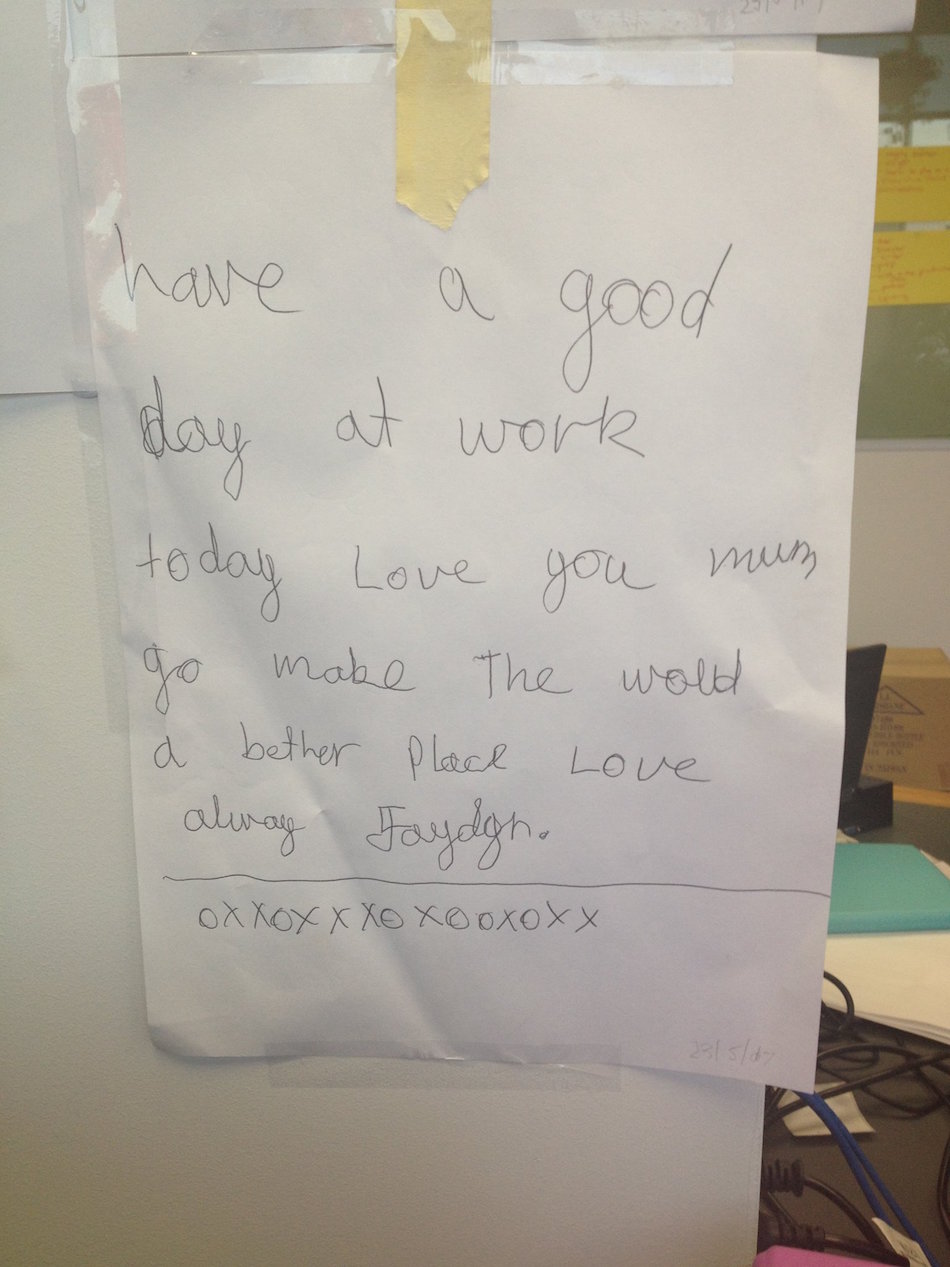 have a good
day at work
today Love you mum
go make The wold
a bether place Love
alway Jaydgn.
oxxoxxxoxooxoxx
23/5/07